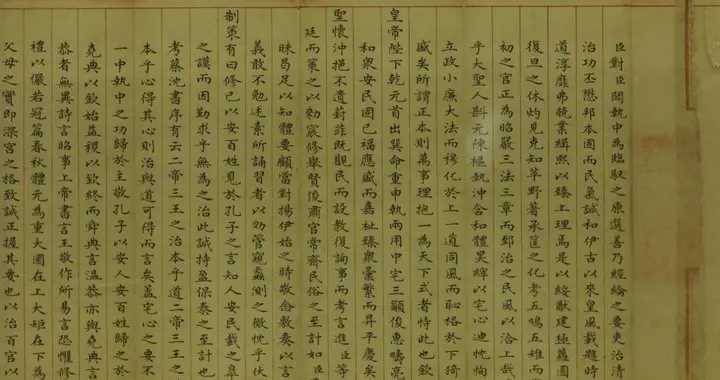 臣對臣聞執中為臨馭之原選善乃經綸之要吏治清
治功丕懋邦本固而民氣誠和伊古以來皇風載颺時
道淳靡弗兢業緝熙以臻上理焉是以綏猷建極蘿圖
復旦之休灼見克知草野著承筐之化考五鳩五雉而
初之官正為昭嚴三法三章而郅治之民風以洽上哉
乎大聖人斟元陳樞執沖含和體昊縡以宅心迪忱恂
立政小廉大法而穆化於上一道同風而恥格於下猗
盛矣所謂正本則萬事理抱一為天下式者恃此也欽
皇帝陛下乾元首出巽命重申執兩用中宅三顧俊惠疇亮
和衆安民固已福應盛而嘉祉臻輿繁而昇平慶矣
聖懷沖挹不遺葑菲既觀民而設教復論事而考言進臣等
廷而策之以勅宸修舉賢俊肅官常齊民俗之至計如臣
昧曷足以知體要顧當對揚伊始之時敬念敷奏以言
義敢不勉述素所誦習者以効管窺蠡測之微忱乎伏
制策有曰修己以安百姓見於孔子之言知人安民載之皋
之謨而因勤求乎無為之治此誠持盈保泰之至計也
考蔡沈書序有云二帝三王之治本乎道二帝三王之
本乎心得其心則治與道可得而言矣蓋宅心之要不
一中執中之功歸於主敬孔子以安人安百姓歸之於
堯典以欽始益稷以欽終而舜典言溫恭亦與堯典言
恭者無異詩言昭事上帝書言王敬作所易言恐懼修
禮以儼若冠篇春秋體元為重大圜在上大矩在下為
父母之實即深宮之格致誠正握其要也以治百官以